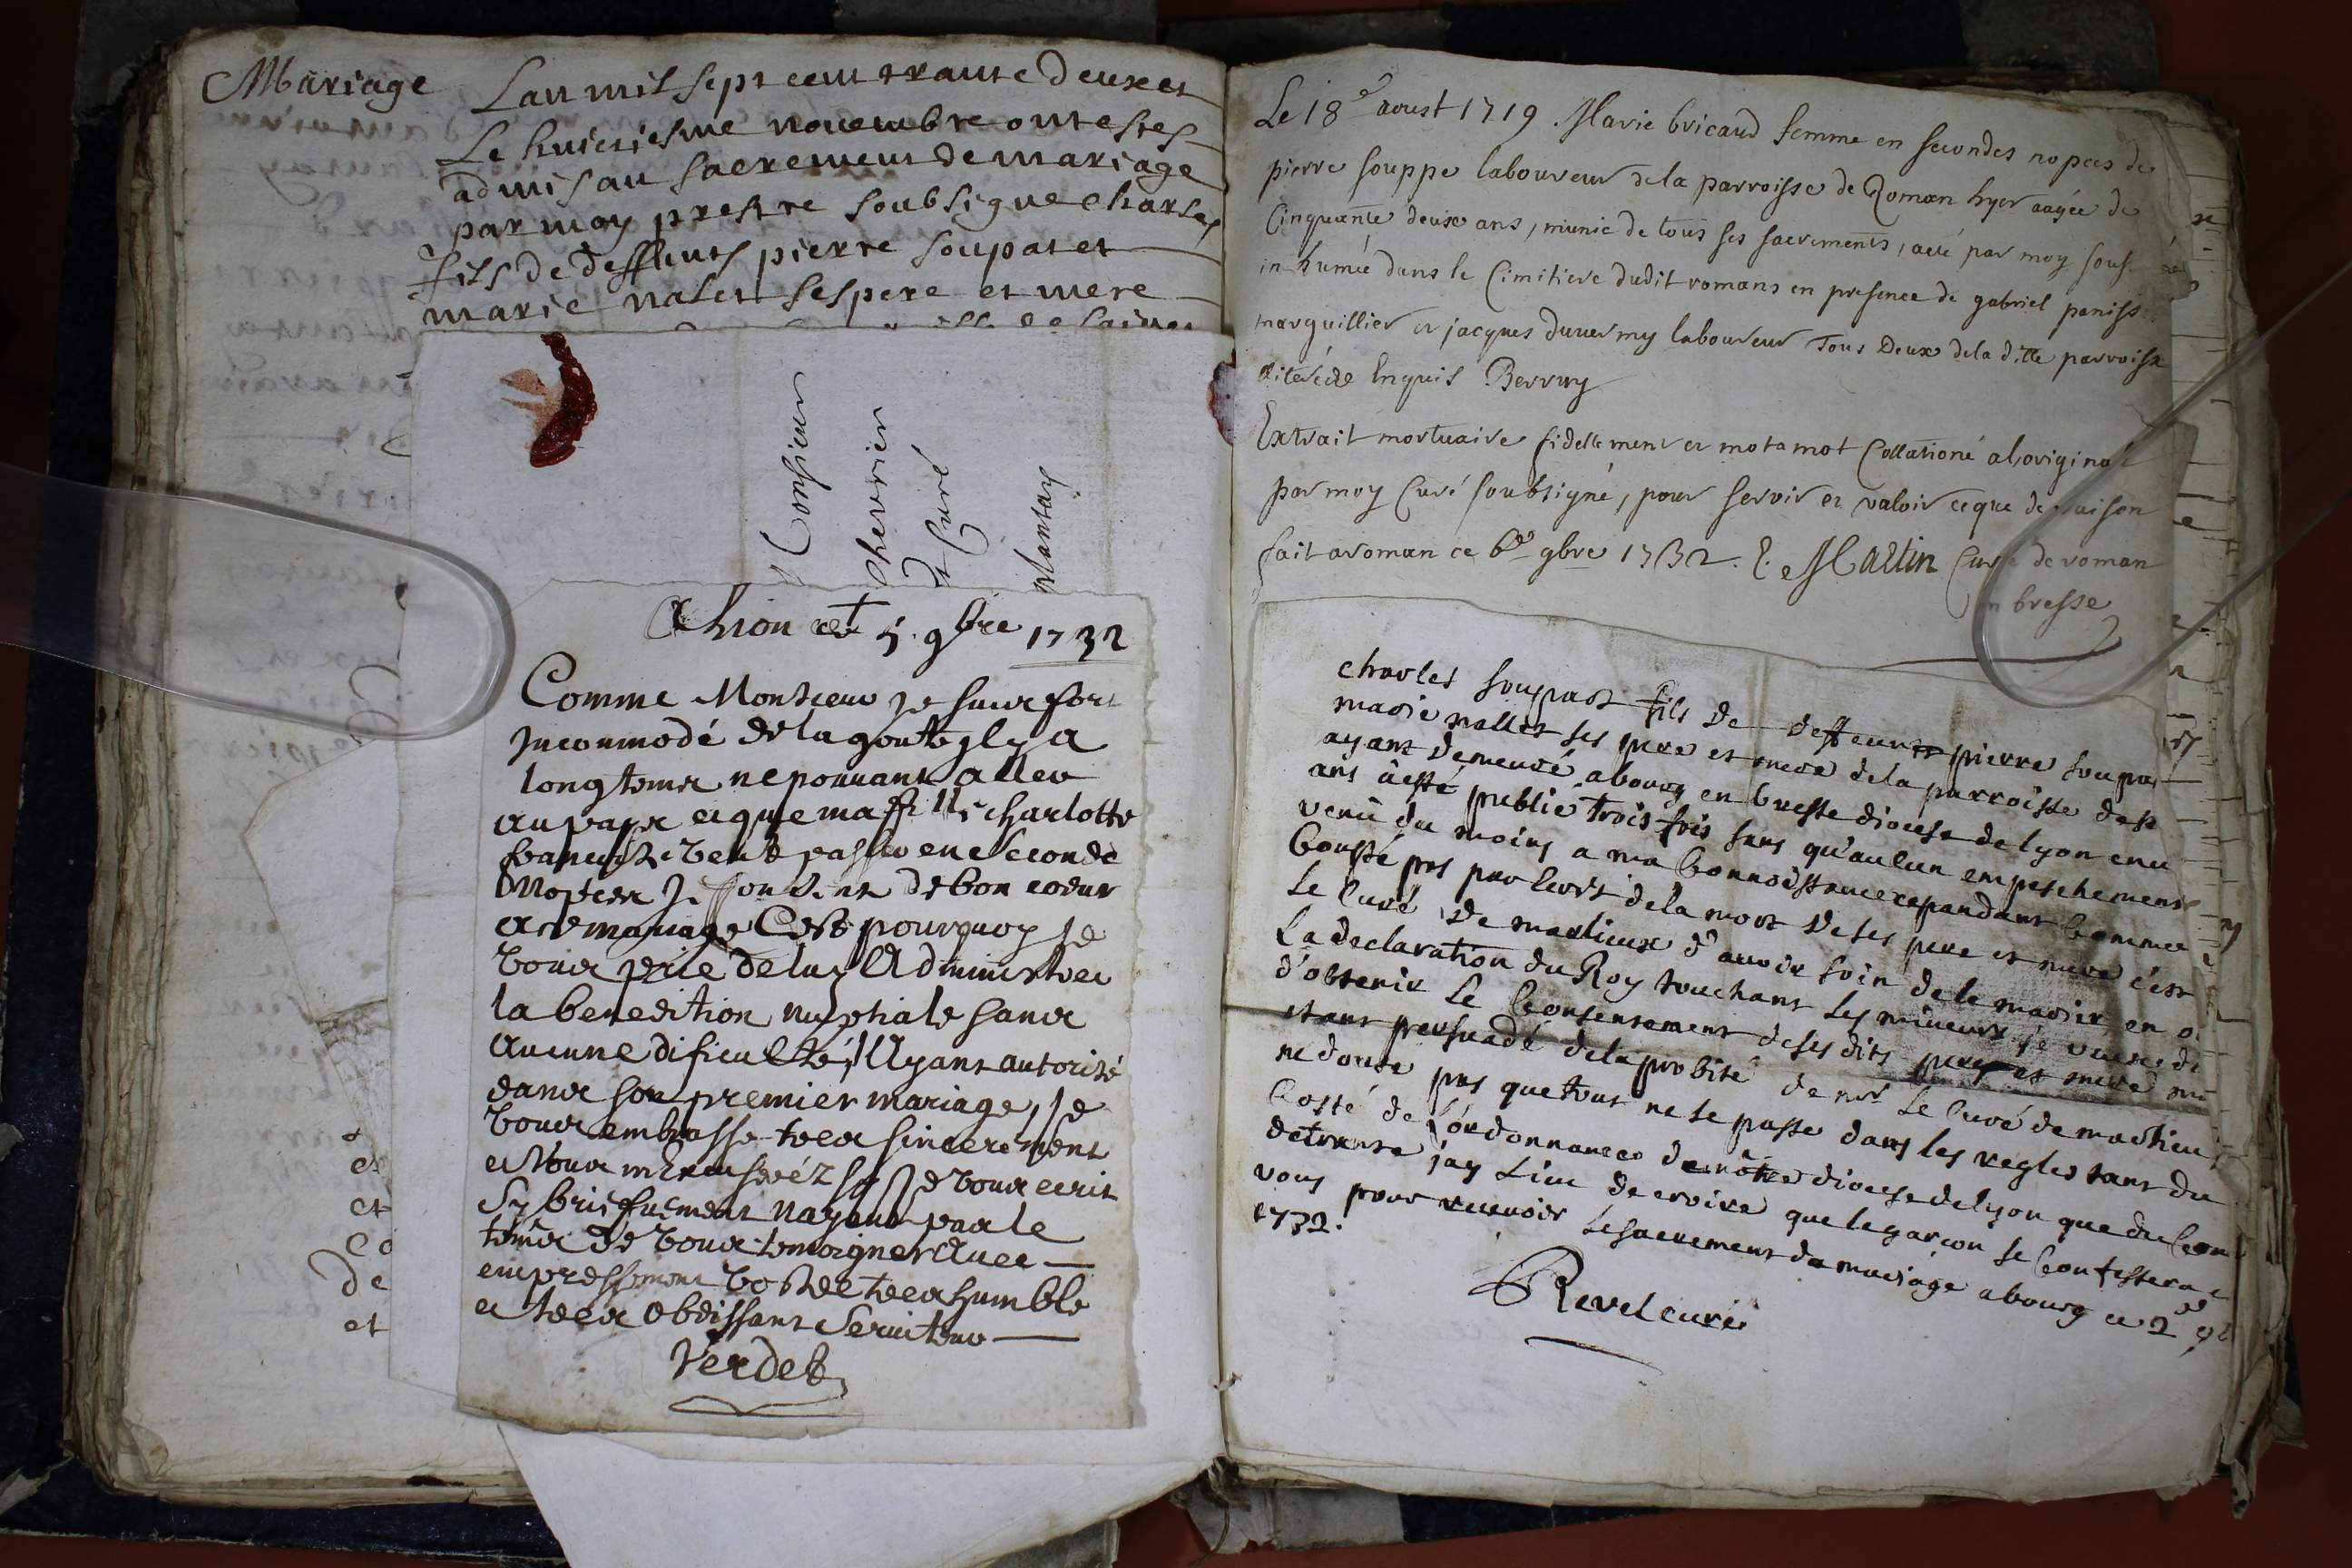 Mariage
Lan mil sept cent trante deux et
Le huictiesme nouembre ont estes
admis au sacrement de mariage
par moy prestre soubsigne Charles
fils de deffunts pierre soupat et
marie nalet ses pere et mere
Monsieur
Chevrier
Curé
Mantay
A Lion ce 5. 9bre 1732
Comme Monsieur je suis fort
Incommodé de la goute yl y a
longtems ne pouvant aller
au païs et que ma fille charlotte
veut passer en Seconde
Nopces Je Consens de bon coeur
a ce mariage C'est pourquoy je
vous prie de luy Administrer
la benedition nuptiale sans
aucune dificulté, l'Ayant autorisé
dans son premier mariage, je
vous embrasse tres sincerement
et Vous m'excuseréz sy Je vous ecrit
Sy briefuement Nayant pas le
tems de vous temoigner Avec
empressement Vostre tres humble
et tres Obeissant Serviteur
Verdet
et
et
Co
De
et
Le 18e aoust 1719. Marie bricaud femme en secondes nopces de
pierre souppe laboureur de la parroisse de Roman hyer aagée de
Cinquante deux ans, munie de tous ses sacrements, a eté par moy sous
inhumée dans le Cimitiere dudit romans en presence de gabriel paniss
marguillier et jacques duvermy laboureur Tous Deux de la ditte parroisse
Enquis Berruy
Extrait mortuaire fidellement et mot a mot Collationé a l'original
par moy Curé soubsigné, pour servir et valoir ce que de raison
fait a roman ce 6e 9bre 1732. Martin Curé de roman
en bresse
charles soupat fils de deffeunts pierre soupat
marie nallet ses pere et mere de la parroisse de st
ayant demeuré a bourg en bresse diocese de lyon
ans a esté publié trois fois sans qu'aulcun empeschement
venu du moins a ma Connoissance cependant Comme
Conste pas par écrit de la mort de ses pere et mere c'est
Le Curé de marlieux d'auoir soin de le marier en
La declaration du Roy touchant les mineurs je veux
d'obtenir Le Consentement de ses dits pere et mere
estant persuadé de la probité de mr Le Curé de marlieux
ne doute pas que tout ne se passe dans les regles tant du
Costé de L'ordonnance de nôtre diocese de lyon que du Con
de trente j'ay Lieu de croire que le garçon se Confessera
vous pour recevoir Le sacrement de mariage a bourg ce 2e 9b
1732.
Revel curé